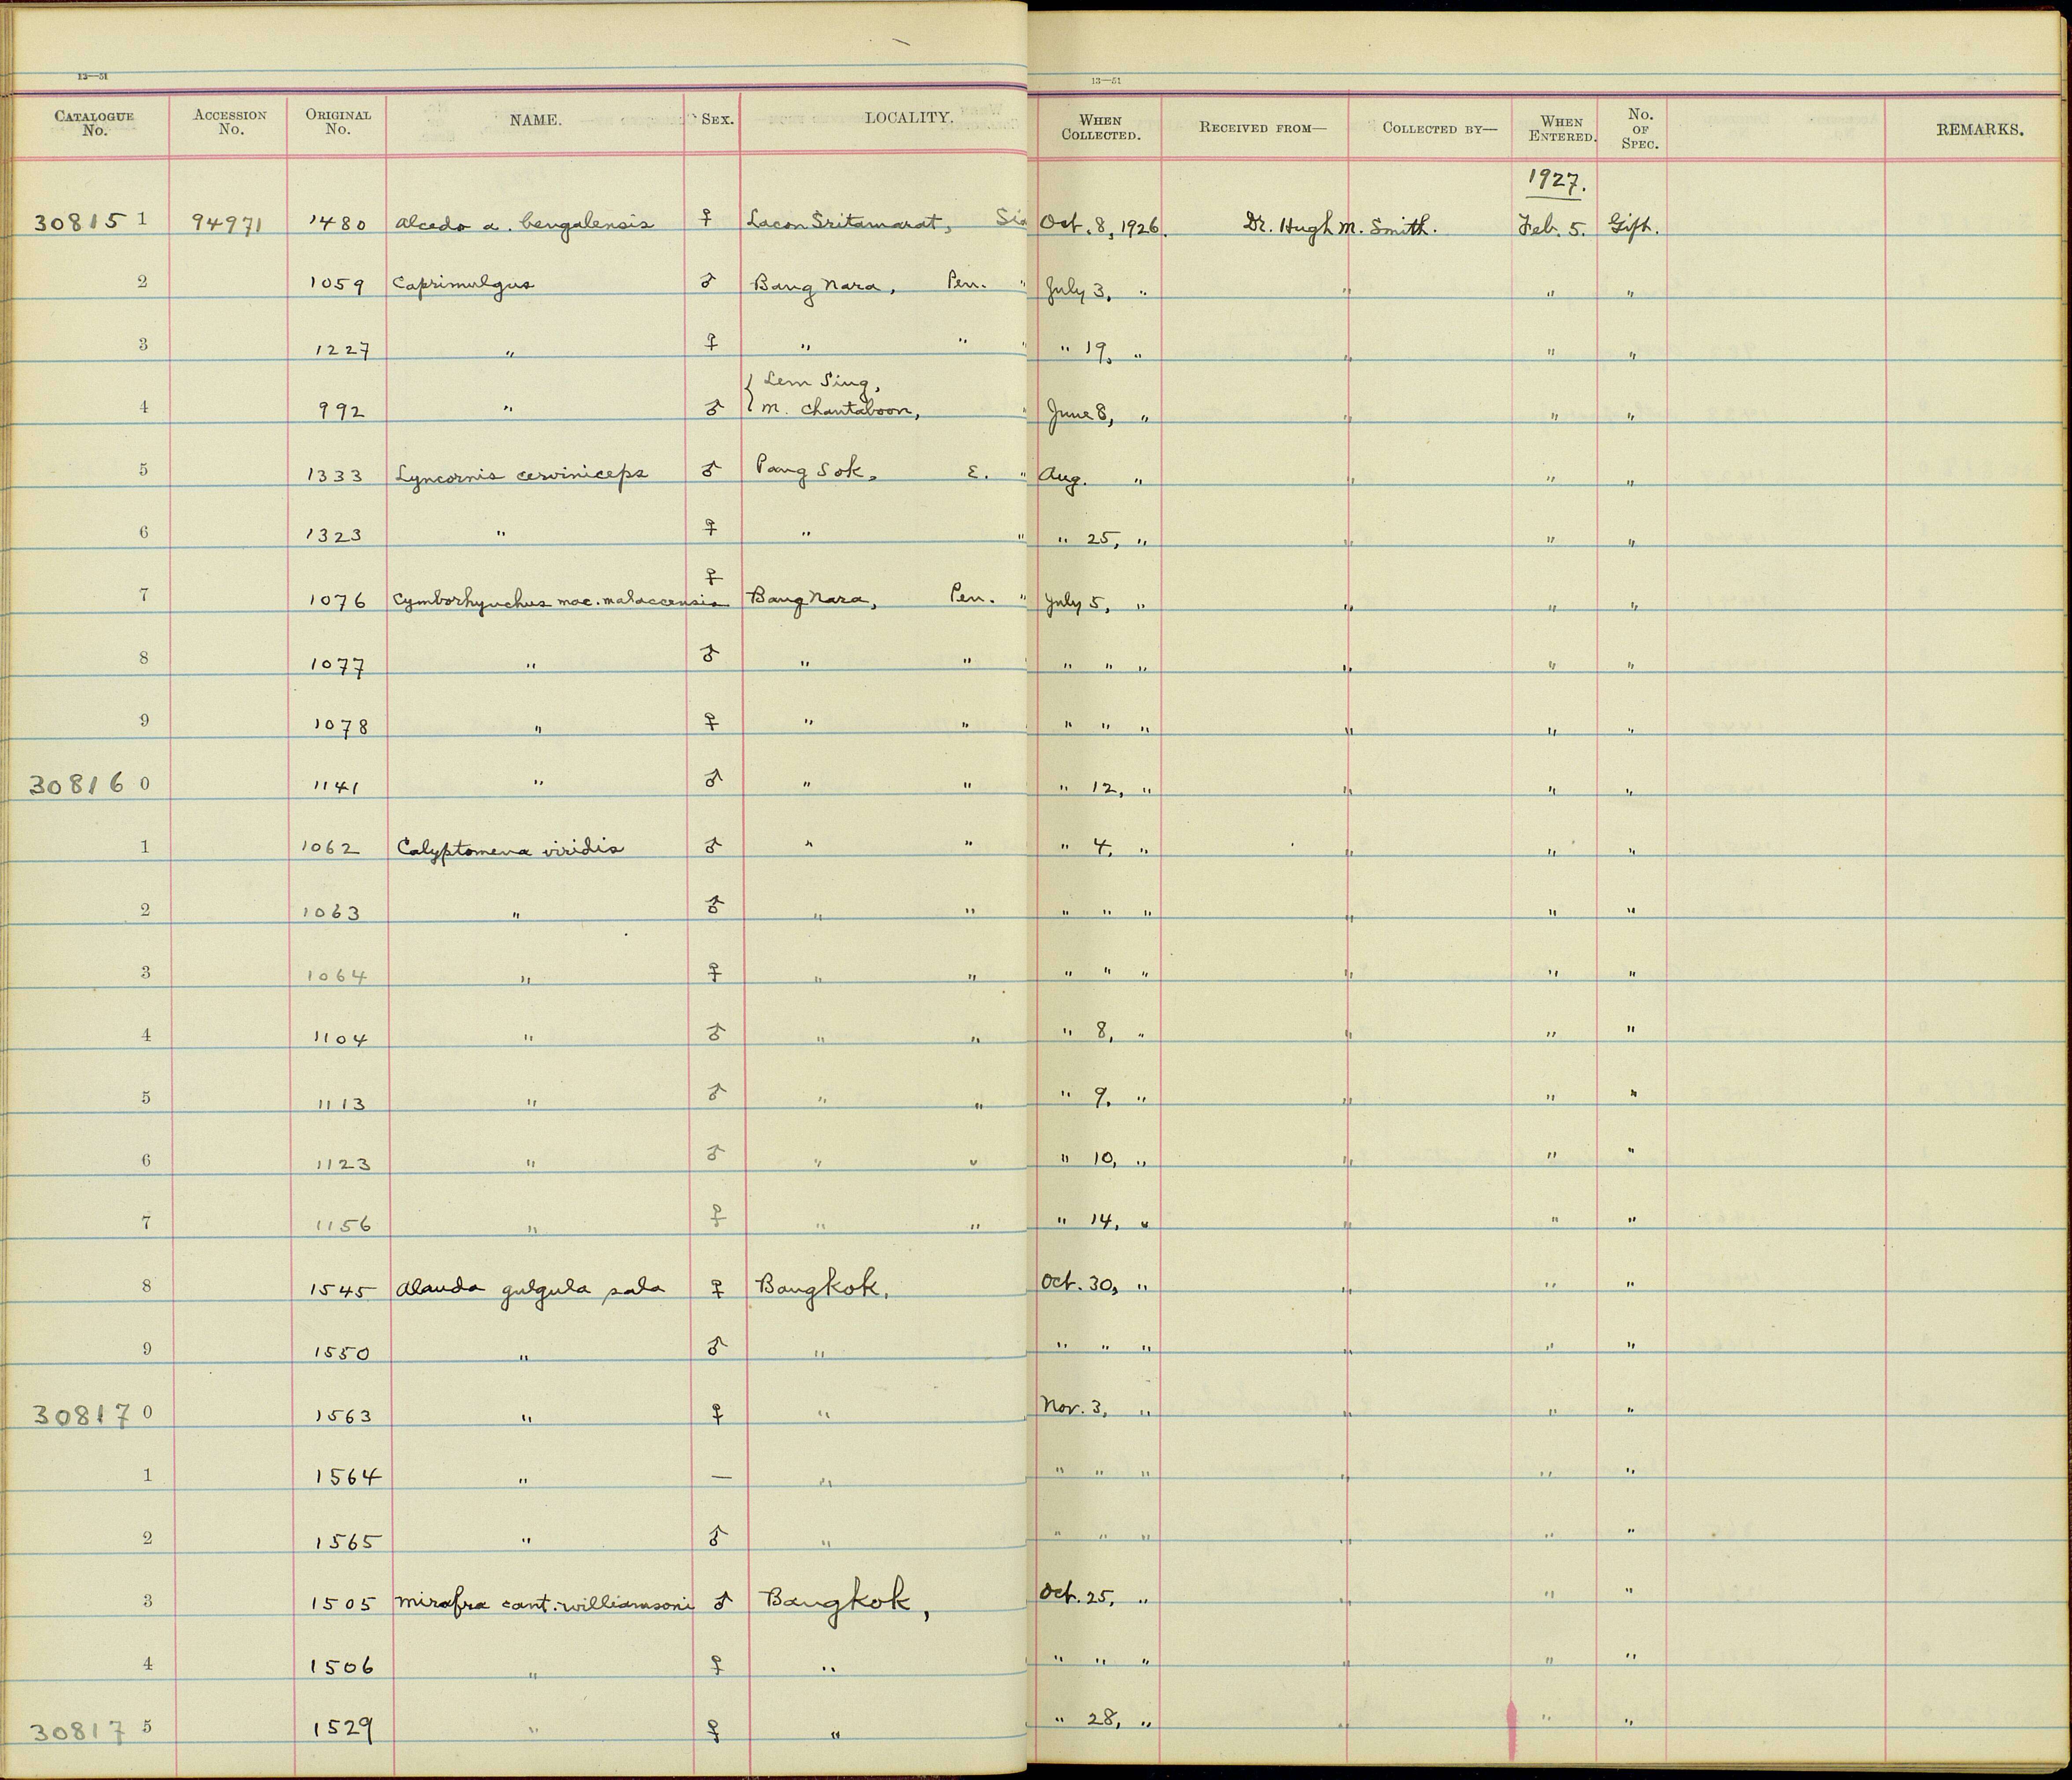 13—51 13—51
CATALOGUE No. ACCESSION No. ORIGINAL No. NAME. SEX. LOCALITY. WHEN COLLECTED. RECEIVED FROM— COLLECTED BY— WHEN ENTERED. No. OF SPEC. REMARKS.
1927.
30815 1 94971 1480 Alcedo a. bengalensis ♀ Lacon Sritamarat, Sia Oct. 8, 1926. Dr. Hugh M. Smith. Feb. 5. Gift.
2 1059 Caprimulgus ♂ Bang Nara, Pen. " July 3, " " " "
3 1227 " ♀ " " " " 19, " " " "
{ Lem Sing,
4 992 " ♂ M. Chantaboon, " June 8, " " " "
5 1333 Lyncornis cerviniceps ♂ Pang Sok, E. " Aug. " " " "
6 1323 " ♀ " " " 25, " " " "
7 1076 Cymborhynchus mac. malaccensis ♀ Bang Nara, Pen. " July 5, " " " "
8 1077 " ♂ " " " " " " " "
9 1078 " ♀ " " " " " " " "
30816 0 1141 " ♂ " " " 12, " " " "
1 1062 Calyptomena viridis ♂ " " " 4, " " " "
2 1063 " ♂ " " " " " " " "
3 1064 " ♀ " " " " " " " "
4 1104 " ♂ " " " 8, " " " "
5 1113 " ♂ " " " 9, " " " "
6 1123 " ♂ " " " 10, " " " "
7 1156 " ♀ " " " 14, " " " "
8 1545 Alauda gulgula sala ♀ Bangkok, Oct. 30, " " " "
9 1550 " ♂ " " " " " " "
30817 0 1563 " ♀ " Nov. 3, " " " "
1 1564 " — " " " " " " "
2 1565 " ♂ " " " " " " "
3 1505 Mirafra cant. williamsoni ♂ Bangkok, Oct. 25, " " " "
4 1506 " ♀ " " " " " " "
30817 5 1529 " ♀ " " 28, " " " "